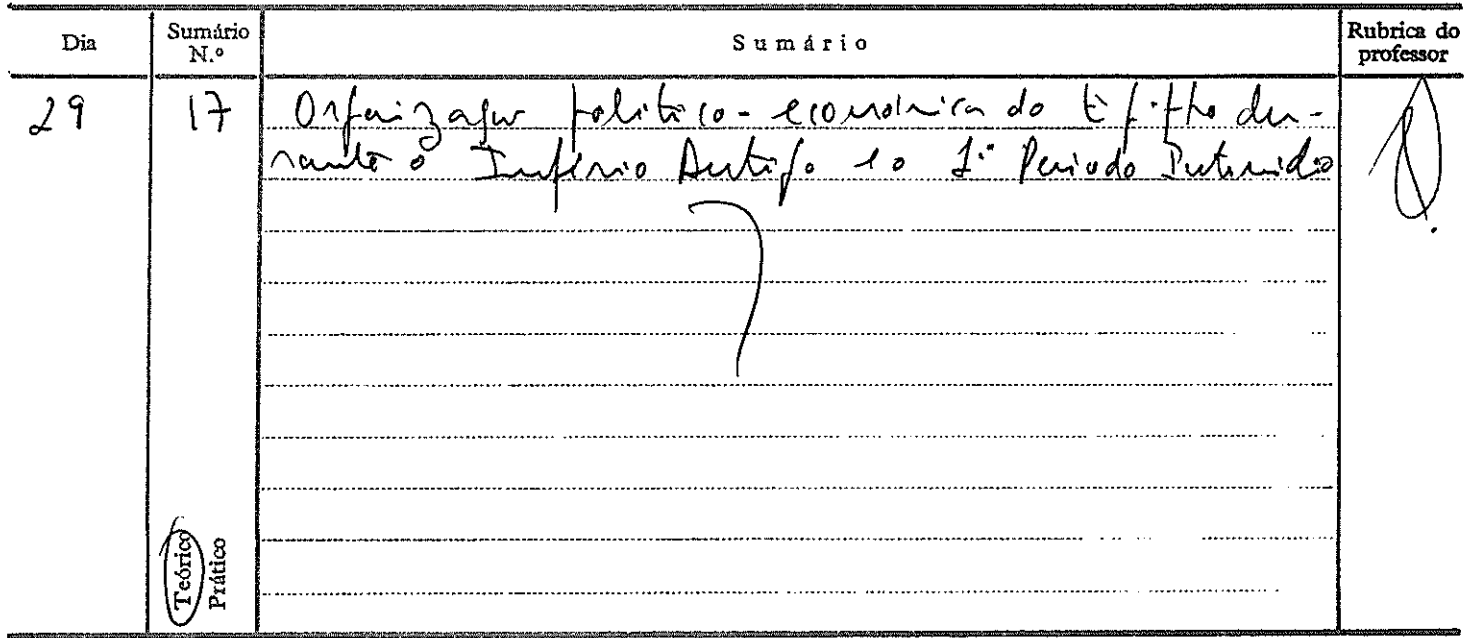 Dia Sumário N.º Sumário Rubrica do professor
29 17 Organização político-económica do Egipto du-
rante o Império Antigo e o 1º Período Intermédio
Teórico
Prático